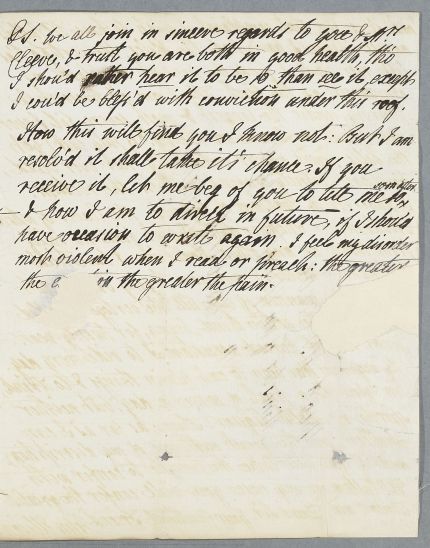 P.S. We all join in sincere regards to you & Mrs
Cleeve, & trust you are both in good health, tho
I shou'd rather hear it to be so than see it, except
I cou'd be bless'd with conviction under this roof.
How this will find you I know not: But I am
resolv'd it shall take it's chance. If you
receive it, let me beg of you to tell me so,
soon after
& how I am to direct in future, if I should
have occasion to write again. I feel my disorder
most violent when I read or preach: the greater
the in the greater the pain.